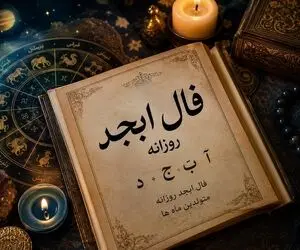 فال ابجد
روزانه
آ ب ج د
فال ابجد روزانه
متولدین ماه ها